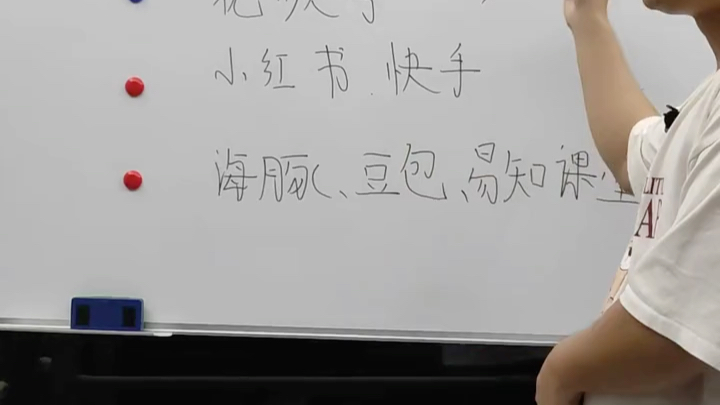 小红书、快手
海豚、豆包、易知课堂
A